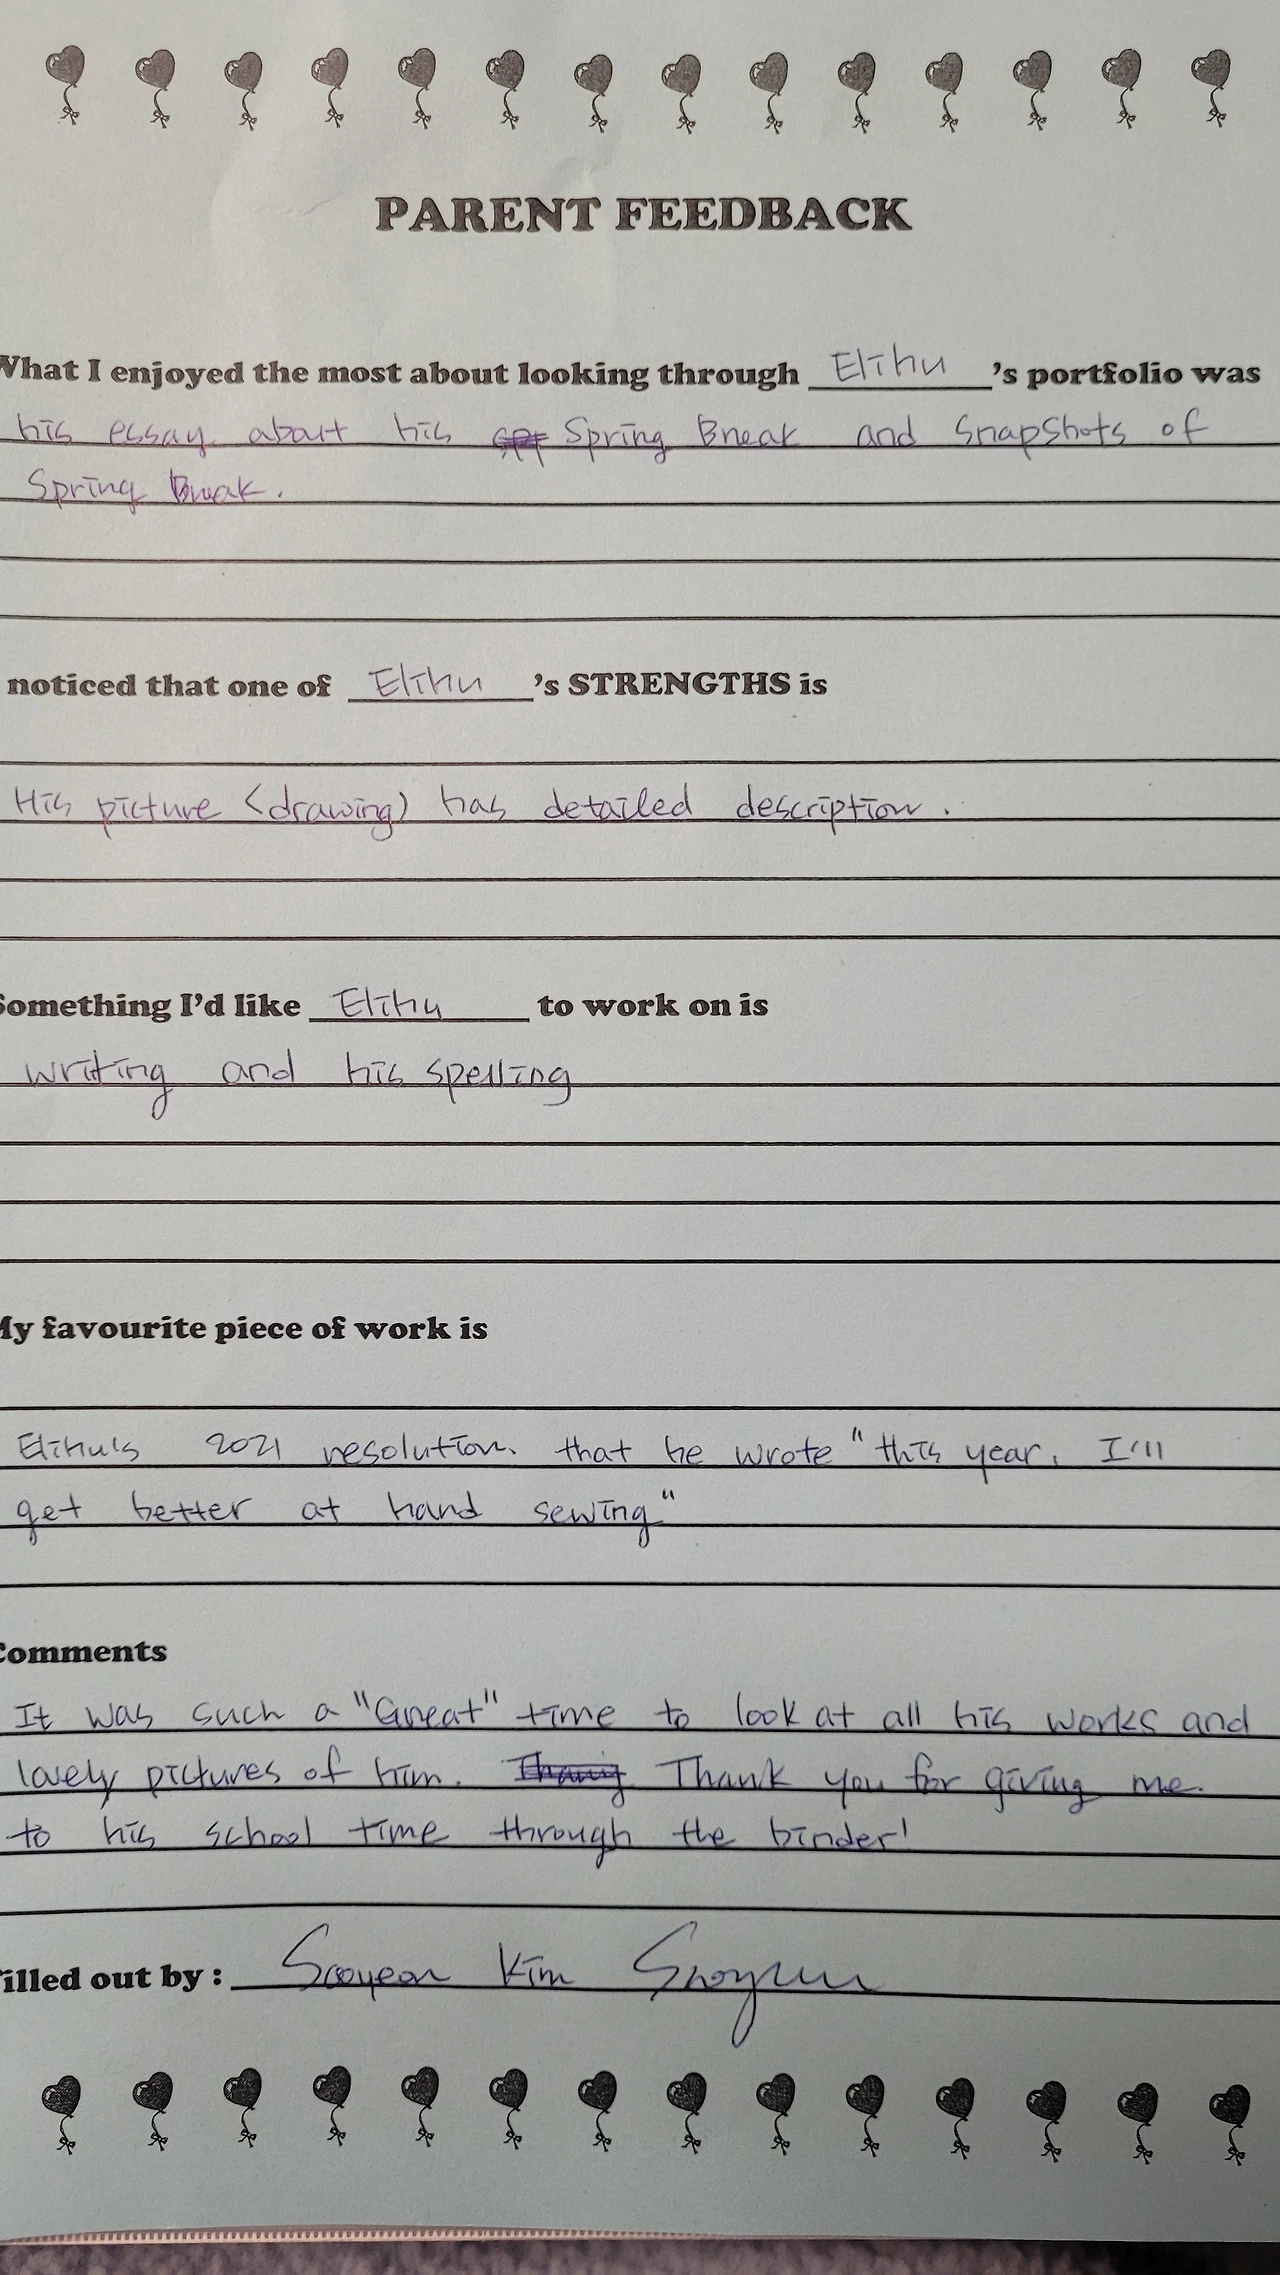 PARENT FEEDBACK
What I enjoyed the most about looking through Elihu's portfolio was
his essay about his Spring Break and Snapshots of
Spring Break.
noticed that one of Elihu's STRENGTHS is
His picture (drawing) has detailed description.
Something I'd like Elihu to work on is
writing and his spelling
My favourite piece of work is
Elihu's 2021 resolution. that he wrote "this year, I'll
get better at hand sewing"
Comments
It was such a "Great" time to look at all his works and
lovely pictures of him. Thank you for giving me
to his school time through the binder!
illed out by : Sooyeon Kim Sooyeon